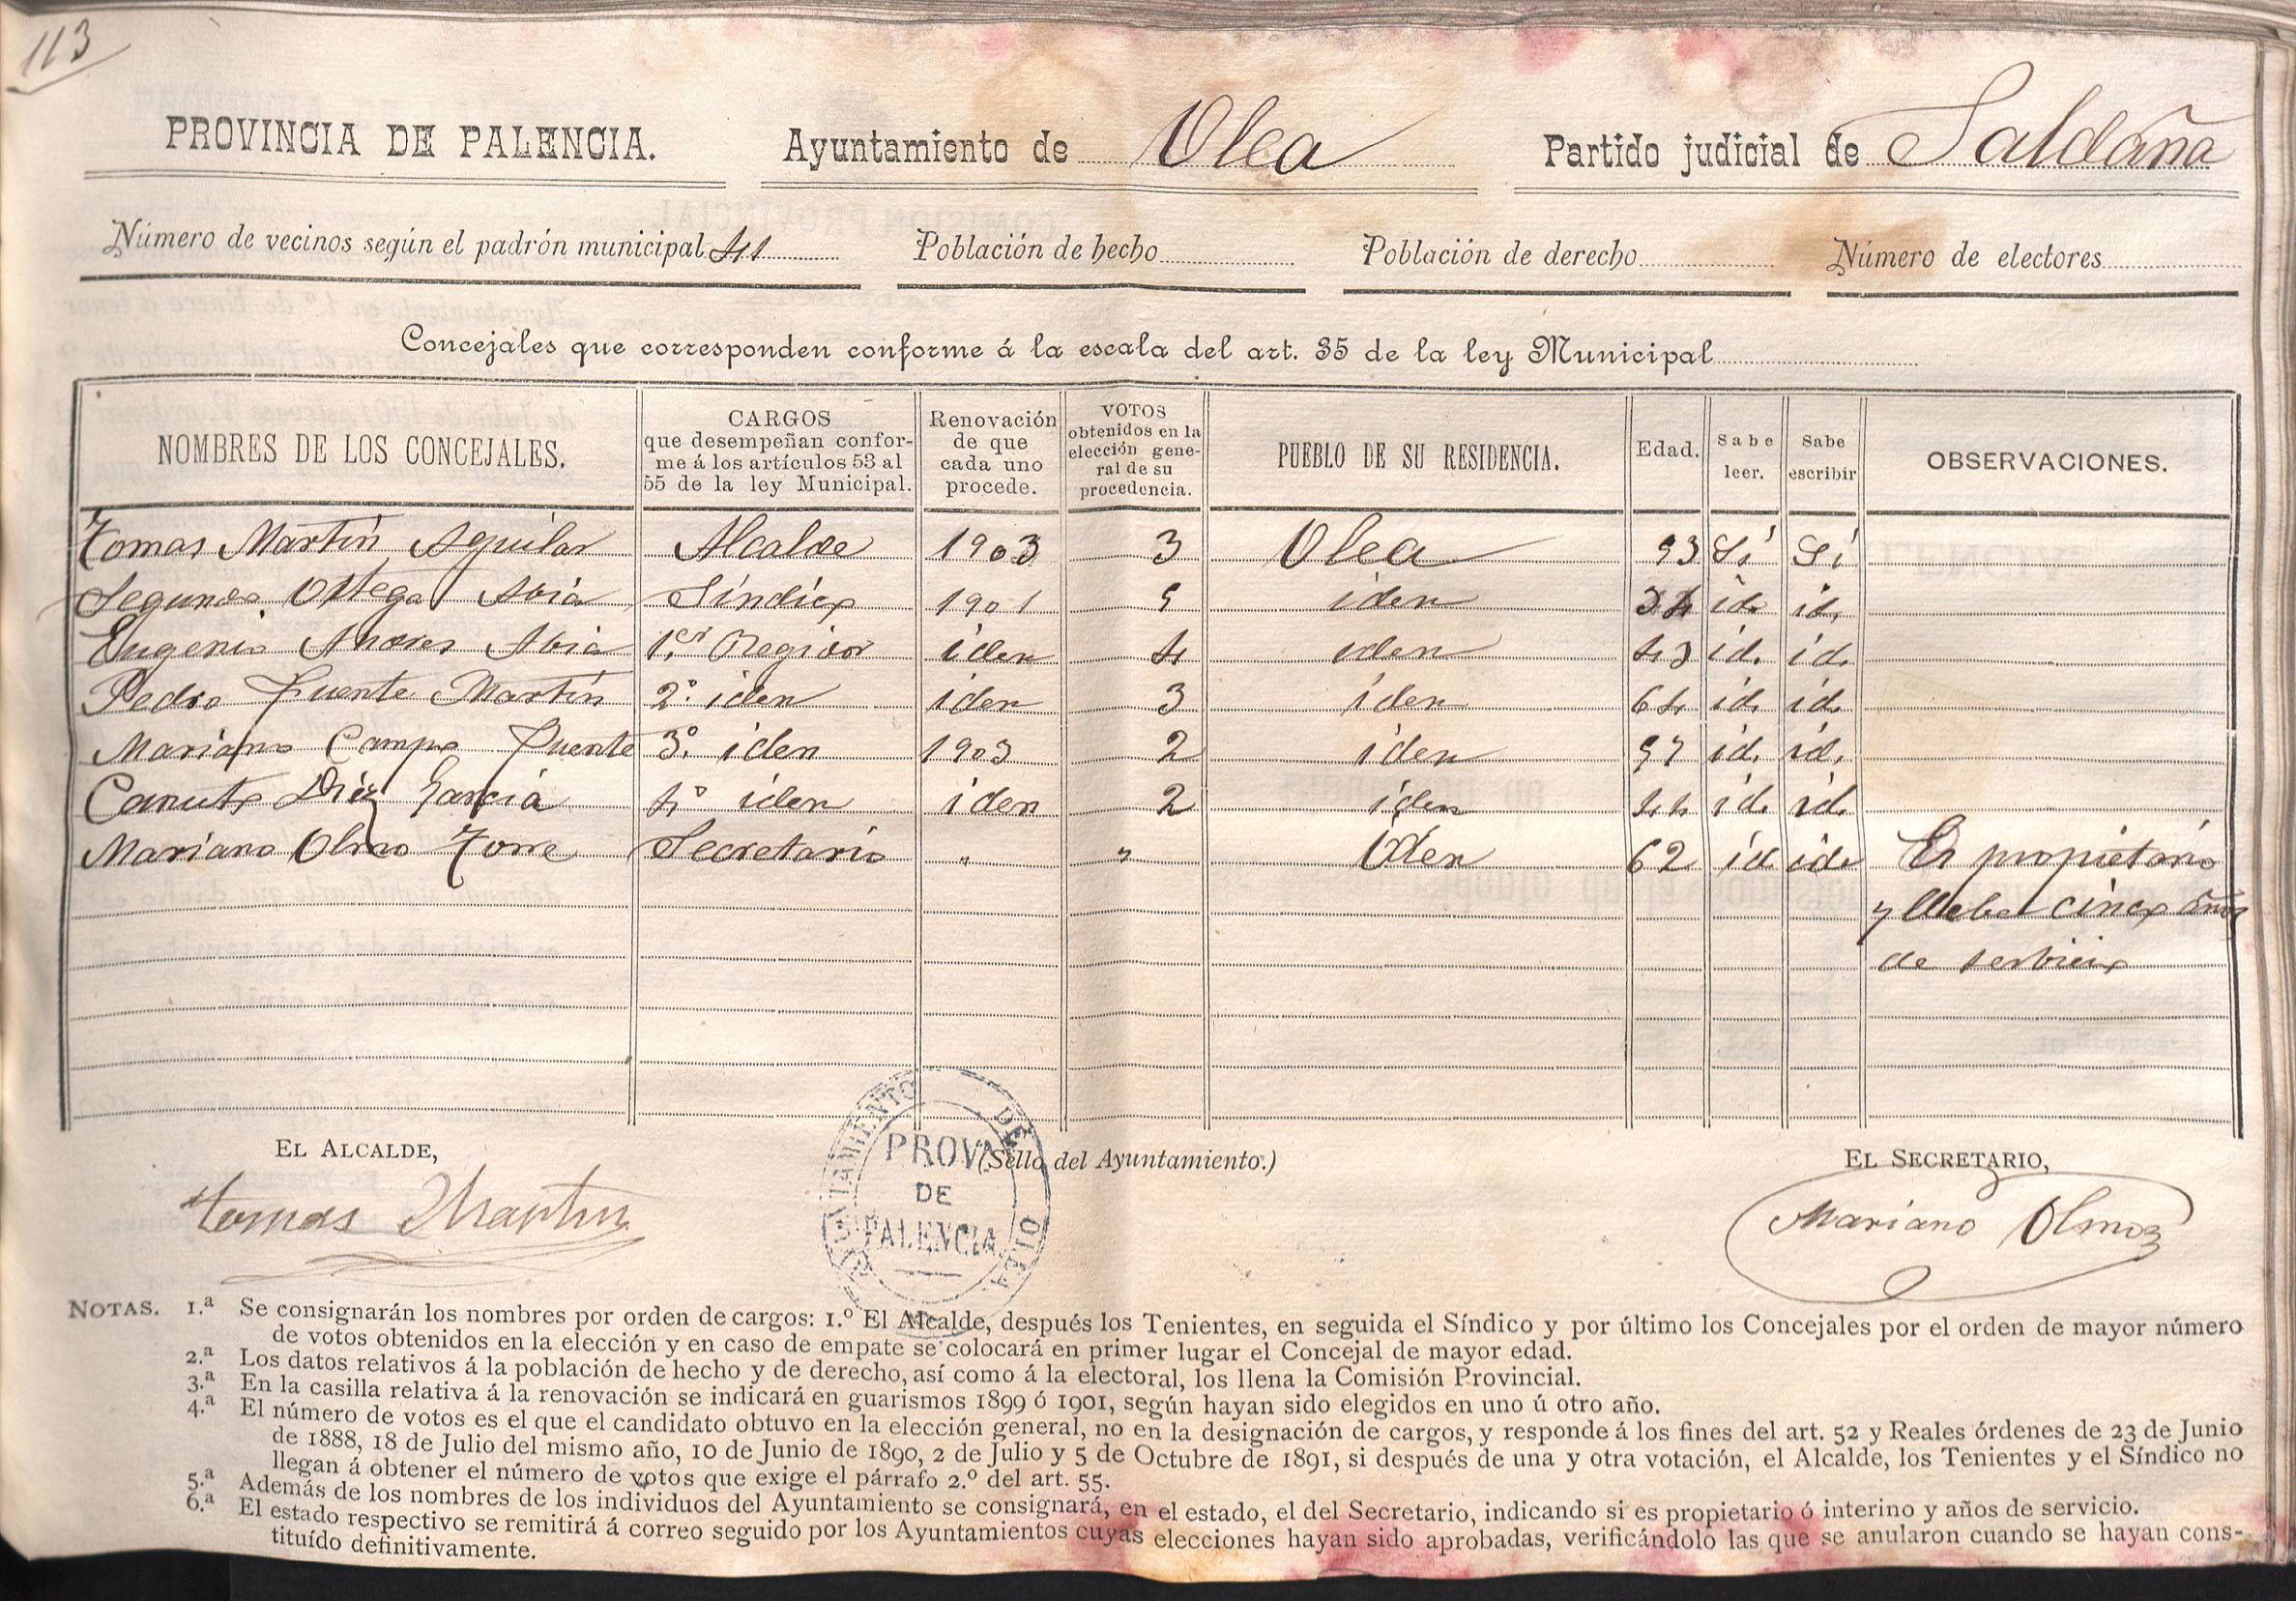 113
PROVINCIA DE PALENCIA. Ayuntamiento de Olea Partido judicial de Saldaña
Número de vecinos según el padrón municipal 41 Población de hecho Población de derecho Número de electores
Concejales que corresponden conforme á la escala del art. 35 de la ley Municipal
NOMBRES DE LOS CONCEJALES. CARGOS que desempeñan conforme á los artículos 53 al 55 de la ley Municipal. Renovación de que cada uno procede. VOTOS obtenidos en la elección general de su procedencia. PUEBLO DE SU RESIDENCIA. Edad. Sabe leer. Sabe escribir OBSERVACIONES.
Tomas Martín Aguilar Alcalde 1903 3 Olea 53 Sí Sí
Segundo Ortega Abia Síndico 1901 5 iden 34 id. id.
Eugenio Andres Abia 1.er Regidor iden 4 iden 43 id. id.
Pedro Fuente Martín 2.º iden iden 3 iden 64 id. id.
Mariano Campo Fuente 3.º iden 1903 2 iden 57 id. id.
Canuto Diez García 4.º iden iden 2 iden 44 id. id.
Mariano Olmo Torre Secretario " " Iden 62 id id Es propietario
y lleba cinco años
de serbicio
EL ALCALDE, (Sello del Ayuntamiento.) EL SECRETARIO,
AYUNTAMIENTO DE OLEA
PROVA
DE
PALENCIA
Tomas Martin Mariano Olmo
NOTAS. 1.ª Se consignarán los nombres por orden de cargos: 1.º El Alcalde, después los Tenientes, en seguida el Síndico y por último los Concejales por el orden de mayor número
de votos obtenidos en la elección y en caso de empate se colocará en primer lugar el Concejal de mayor edad.
2.ª Los datos relativos á la población de hecho y de derecho, así como á la electoral, los llena la Comisión Provincial.
3.ª En la casilla relativa á la renovación se indicará en guarismos 1899 ó 1901, según hayan sido elegidos en uno ú otro año.
4.ª El número de votos es el que el candidato obtuvo en la elección general, no en la designación de cargos, y responde á los fines del art. 52 y Reales órdenes de 23 de Junio
de 1888, 18 de Julio del mismo año, 10 de Junio de 1890, 2 de Julio y 5 de Octubre de 1891, si después de una y otra votación, el Alcalde, los Tenientes y el Síndico no
llegan á obtener el número de votos que exige el párrafo 2.º del art. 55.
5.ª Además de los nombres de los individuos del Ayuntamiento se consignará, en el estado, el del Secretario, indicando si es propietario ó interino y años de servicio.
6.ª El estado respectivo se remitirá á correo seguido por los Ayuntamientos cuyas elecciones hayan sido aprobadas, verificándolo las que se anularon cuando se hayan cons-
tituído definitivamente.